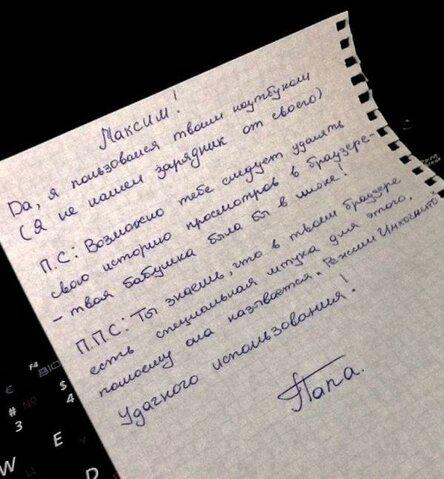 Максим!
Да, я пользовался твоим ноутбуком
(Я не нашел зарядник от своего)
П.С: Возможно тебе следует удалять
свою историю просмотров в браузере-
- твоя бабушка была бы в шоке!
П.П.С: Ты знаешь, что в твоем браузере
есть специальная штука для этого,
помоему она называется "Режим Инкогнито"
Удачного использования!
Папа.
F4
€
$
4
#
3
W
E
D